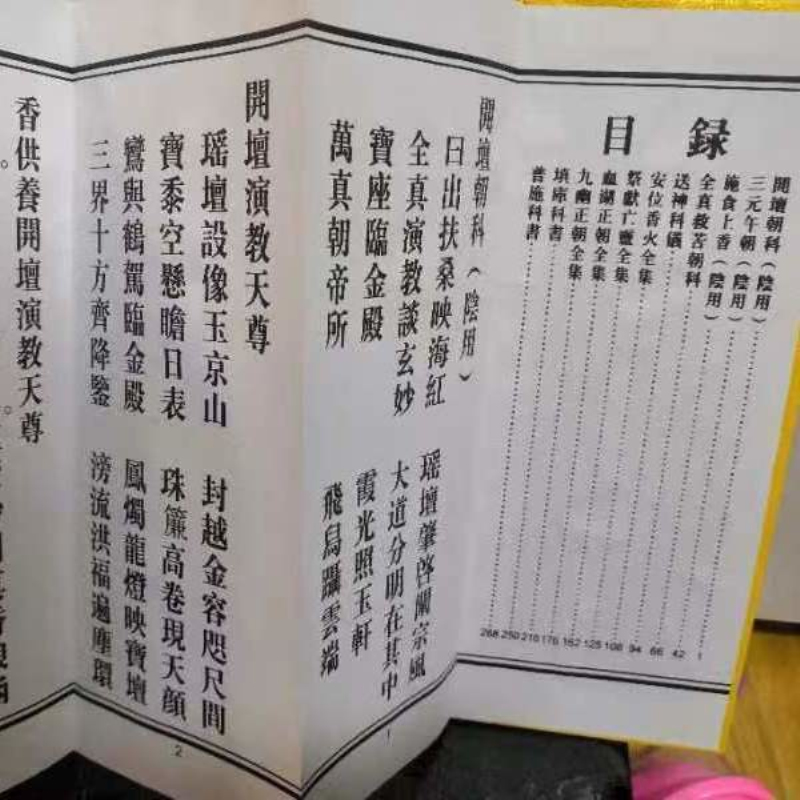 目録
開壇朝科(陰用)……1
三元午朝(陰用)……42
施食上香(陰用)……66
全真救苦朝科……94
送神科儀……108
安位香火全集……125
祭獻亡靈全集……162
血湖正朝全集……176
九幽正朝全集……218
填庫科書……250
普施科書……268
開壇朝科(陰用)
日出扶桑映海紅 瑶壇肇啓闡宗風
全真演教談玄妙 大道分明在其中
寶座臨金殿 霞光照玉軒
萬真朝帝所 飛鳥躡雲端
1
開壇演教天尊
瑶壇設像玉京山 封越金容咫尺間
寶黍空懸瞻日表 珠簾高卷現天顔
鸞與鶴駕臨金殿 鳳燭龍燈映寶壇
三界十方齊降鑒 滂流洪福遍塵環
2
香供養開壇演教天尊